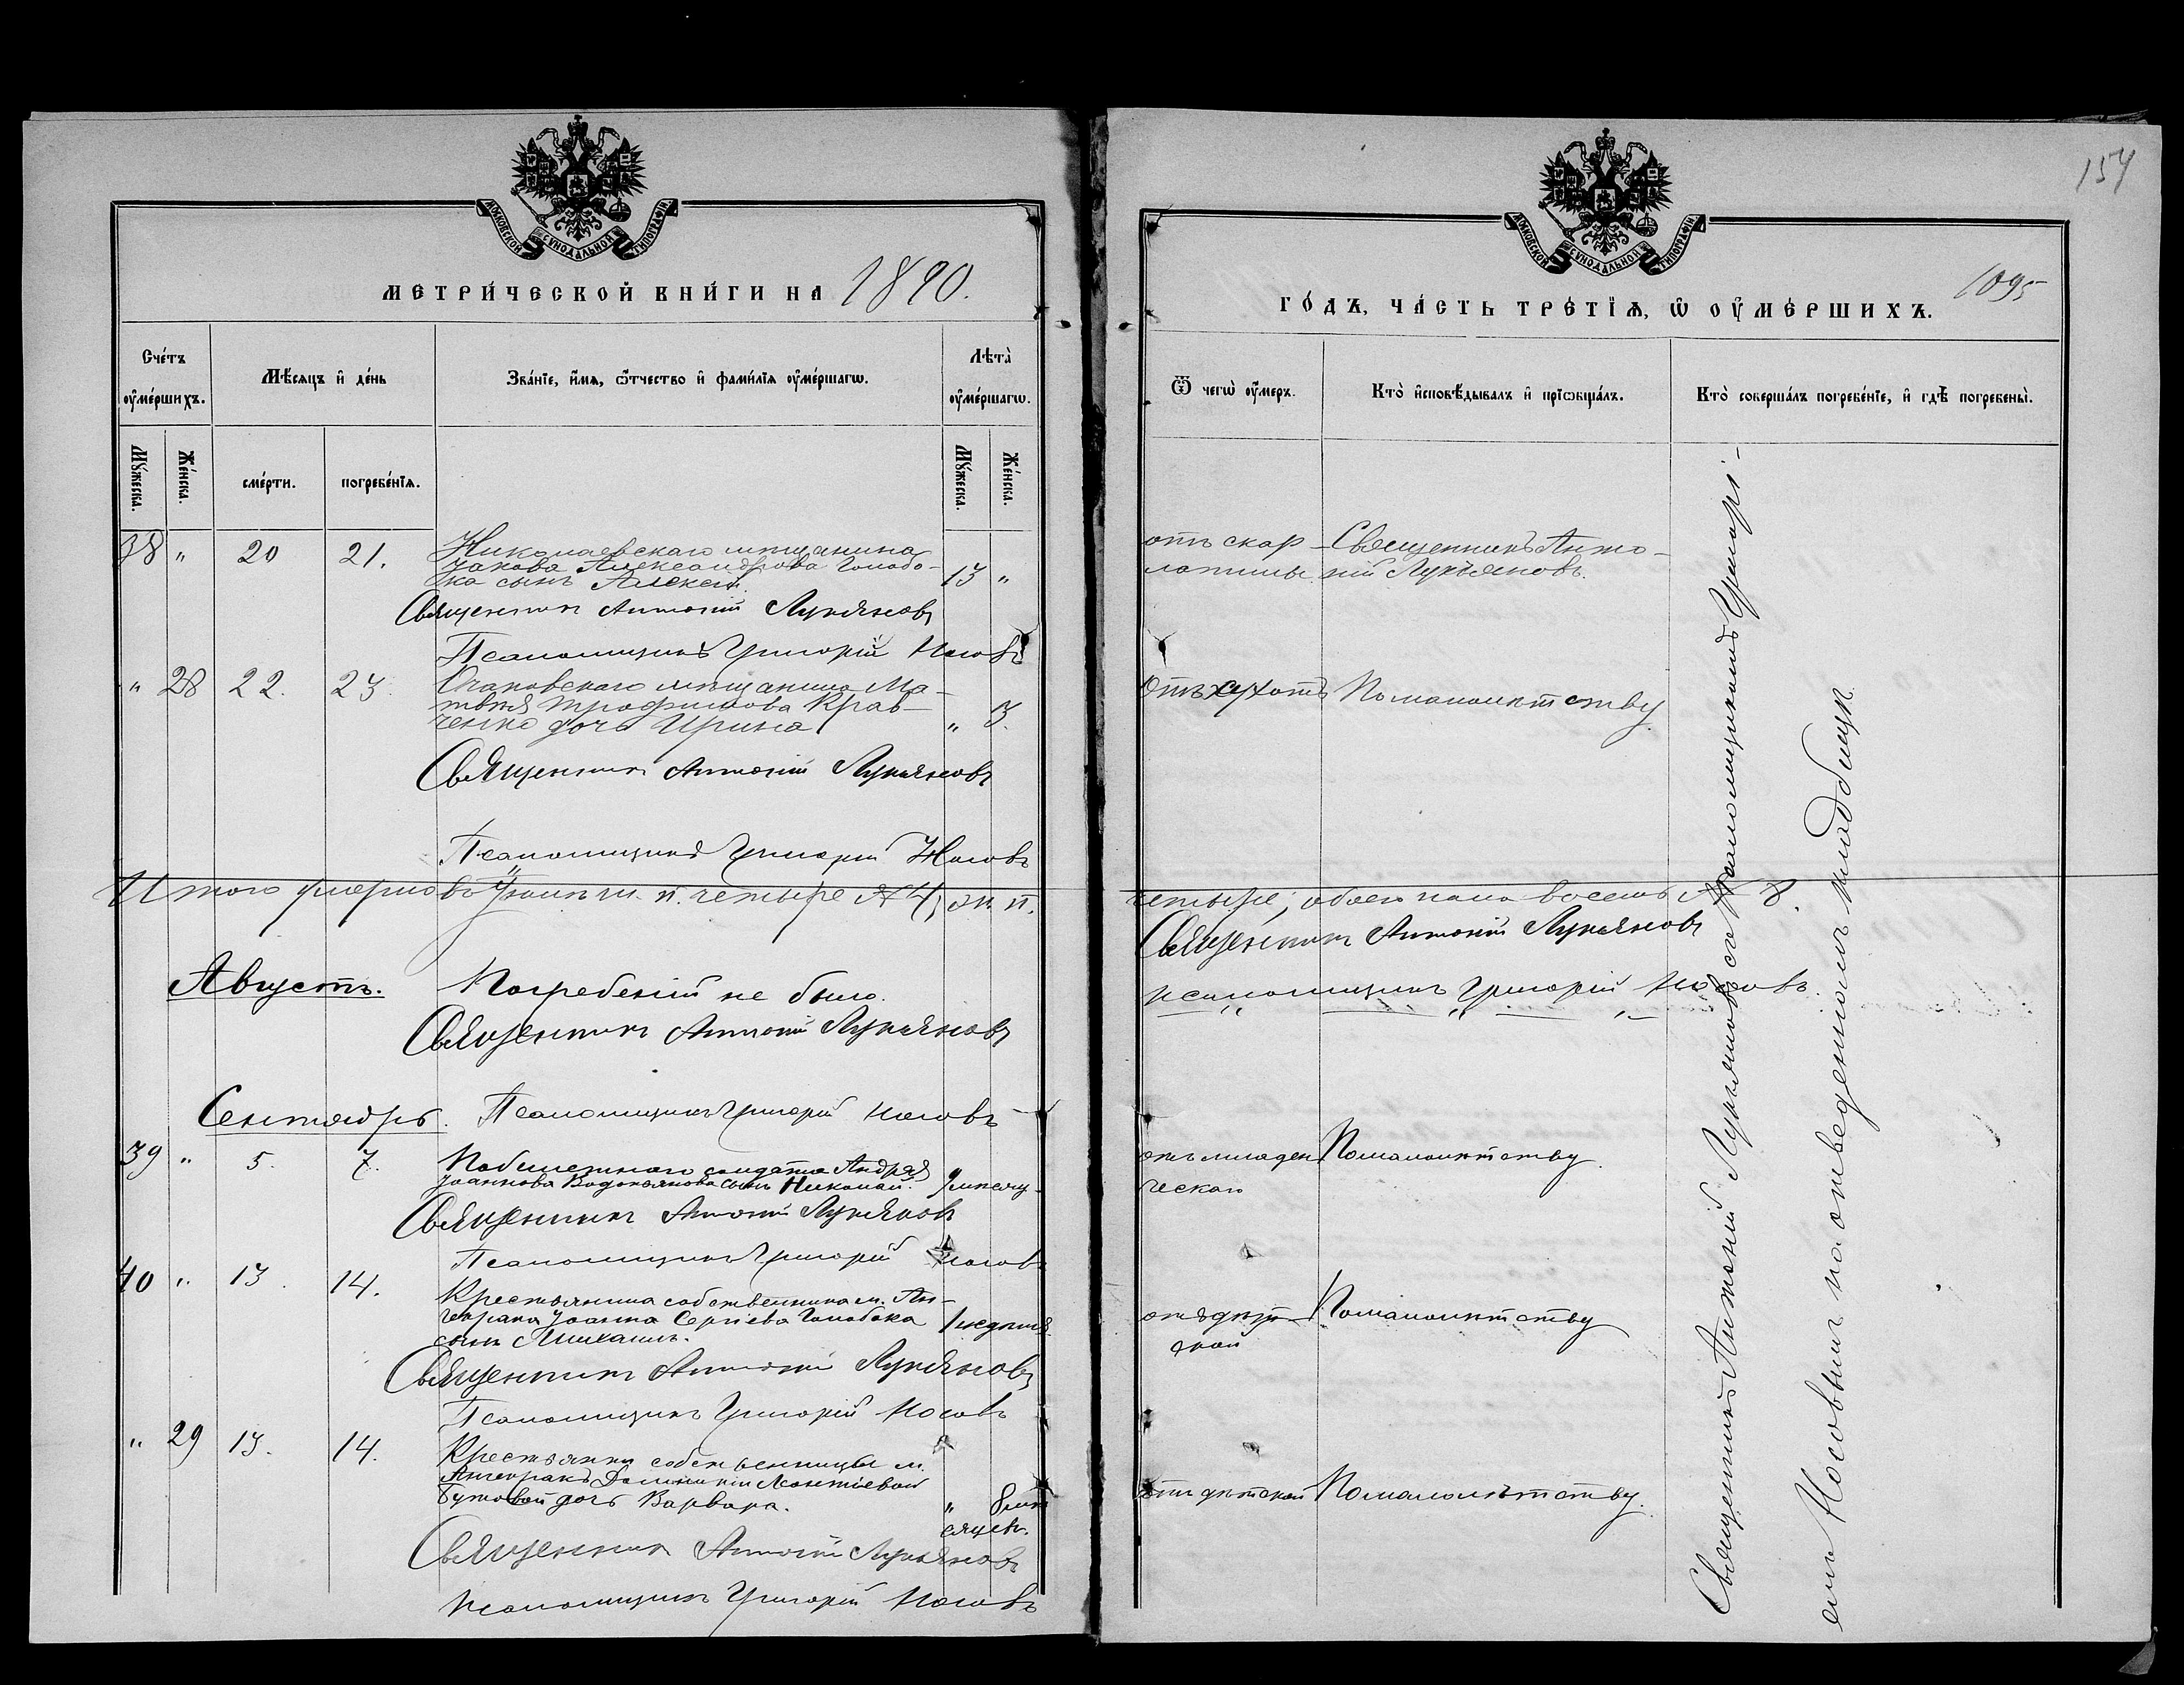 МОСКОВСКОЙ СѴНОДАЛЬНОЙ ТИПОГРАФІИ
МЕТРИ́ЧЕСКОЙ КНИ́ГИ НА 1890.
Сче́тъ оумéршихъ.
Мѣ́сяцъ и де́нь
Зва́нїе, и́мя, ѻ҆́тчество и фами́лїя оумéршагѡ.
Лѣта̀ оумéршагѡ.
Му́жеска.
Же́нска.
сме́рти.
погребе́нїя.
Му́жеска.
Же́нска.
38 " 20 21. Николаевскаго мѣщанина
Іакова Александрова Голобо-
ка сынъ Алексѣй. 13 "
Священникъ Антоній Лукьяновъ
Псаломщикъ Григорій Носовъ
" 28 22. 23. Очаковскаго мѣщанина Ма-
твѣя Трофимова Крав-
ченко дочь Ирина " 3.
Священникъ Антоній Лукьяновъ
Псаломщикъ Григорій Носовъ
Итого умерло въ Іюлѣ м. п. четыре № 4, ж. п.
Августъ. Погребеній не было.
Священникъ Антоній Лукьяновъ
Сентябрь. Псаломщикъ Григорій Носовъ
39 " 5. 7. Побилетнаго солдата Андрея
Іоаннова Водопьянова сынъ Николай. 9 мѣсяц.
Священникъ Антоній Лукьяновъ
Псаломщикъ Григорій Носовъ
40 " 13. 14. Крестьянина собственника м. Ан-
чекрака Іоанна Сергіева Голобока 1 недѣля.
сынъ Михаилъ.
Священникъ Антоній Лукьяновъ
Псаломщикъ Григорій Носовъ
" 29 13. 14. Крестьянки собственницы м.
Анчекракъ Домникіи Леонтіевой
Бутовой дочь Варвара. " 8 мѣ
сяцевъ.
Священникъ Антоній Лукьяновъ
Псаломщикъ Григорій Носовъ
154
МОСКОВСКОЙ СѴНОДАЛЬНОЙ ТИПОГРАФІИ
1095
ГО́ДЪ, ЧА́СТЬ ТРЕ́ТЇѦ, Ѡ ОУМЕ́РШИХЪ.
Ѿ чегѡ̀ оу́меръ.
Кто̀ и҆сповѣ́дывалъ и прїѡбща́лъ.
Кто̀ соверша́лъ погребе́нїе, и гдѣ̀ погребены̀.
отъ скар-
латины
Священникъ Анто-
ній Лукьяновъ.
Отъ сухотъ По малолѣтству.
четыре, обоего пола восемь № 8.
Священникъ Антоній Лукьяновъ
псаломщикъ Григорій Носовъ.
отъ младен
ческаго
По малолѣтству.
отъ дѣт-
ской
По малолѣтству
отъ дѣтской По малолѣтству.
Священникъ Антоній Лукьяновъ съ Псаломщикомъ Григорі-
емъ Носовымъ на отведенномъ кладбищѣ.